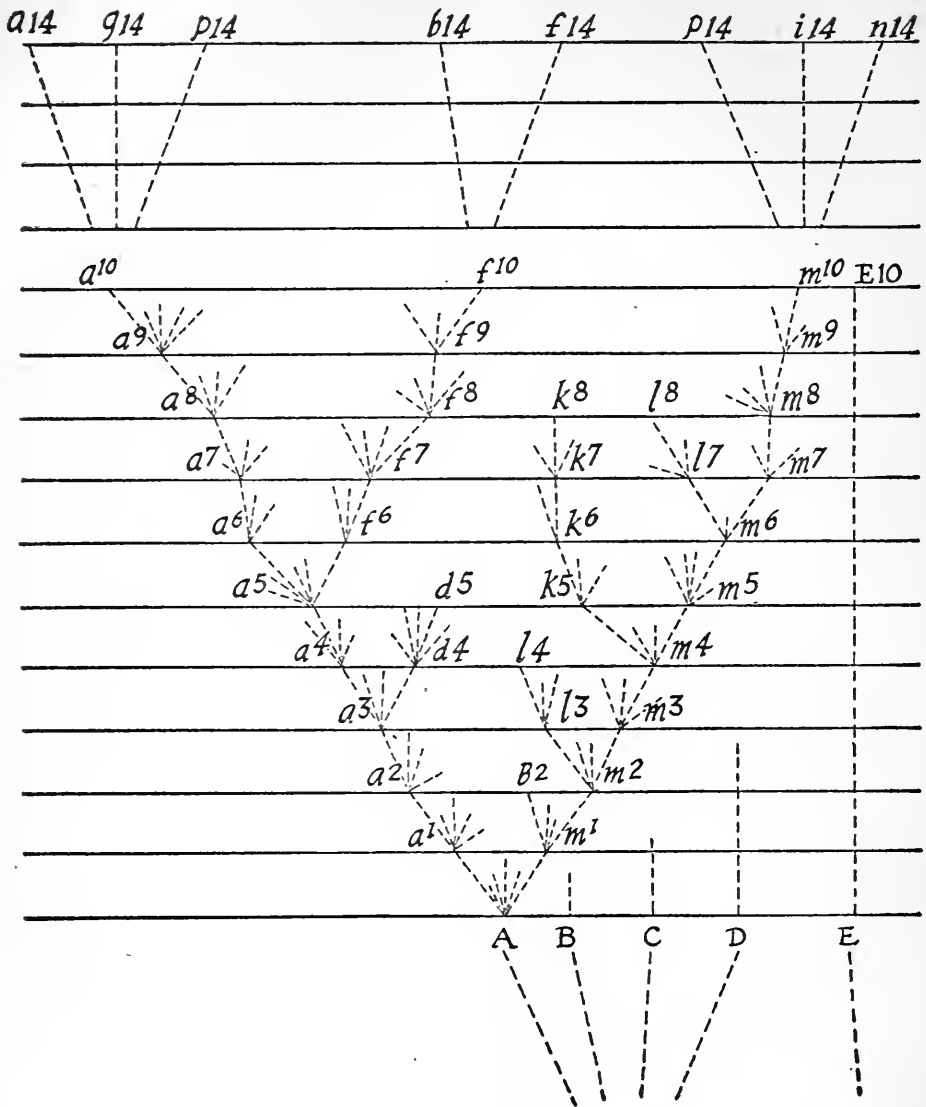 a14 g14 p14 b14 f14 p14 i14 n14
a10 f10 m10 E10
a9 f9 m9
a8 f8 k8 l8 m8
a7 f7 k7 l7 m7
a6 f6 k6 m6
a5 d5 k5 m5
a4 d4 l4 m4
a3 l3 m3
a2 B2 m2
a1 m1
A B C D E